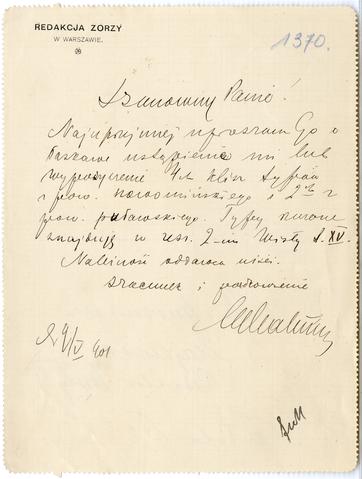 REDAKCJA ZORZY
W WARSZAWIE.
1370.
Szanowny Panie!
Najuprzejmiej upraszam Go o
łaskawe ustąpienie mi lub
wypożyczenie 4ch klisz typów
z pow. nowomińskiego i 2ch z
pow. puławskiego. Typy
znajdują w zesz. 2-im Wisły t. XV.
szacunek i poważanie
9/V 901